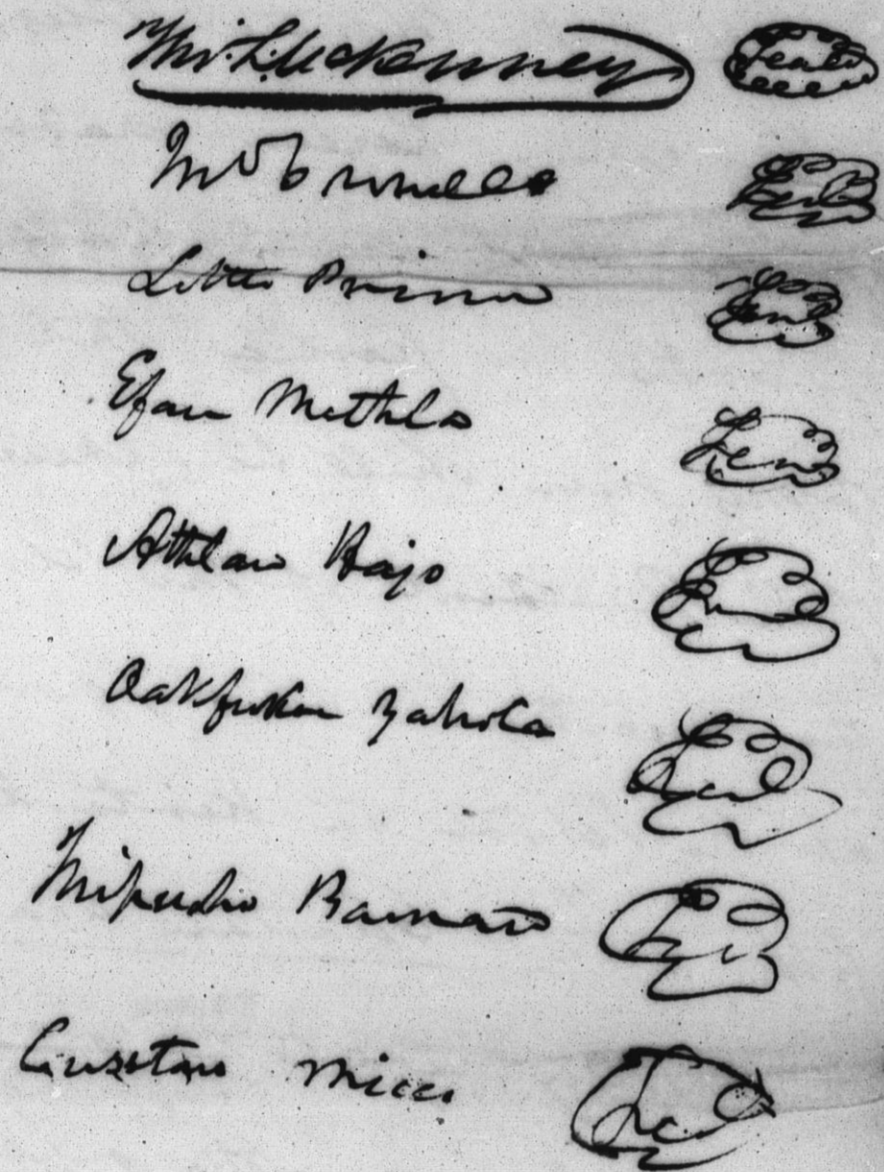 Tho. L. McKenney Seal
Seal
Little Prince Seal
Efau Mathla Seal
Athlau Hajo Seal
Oakfuskee Yahola Seal
Seal
Cussetau Micco Seal